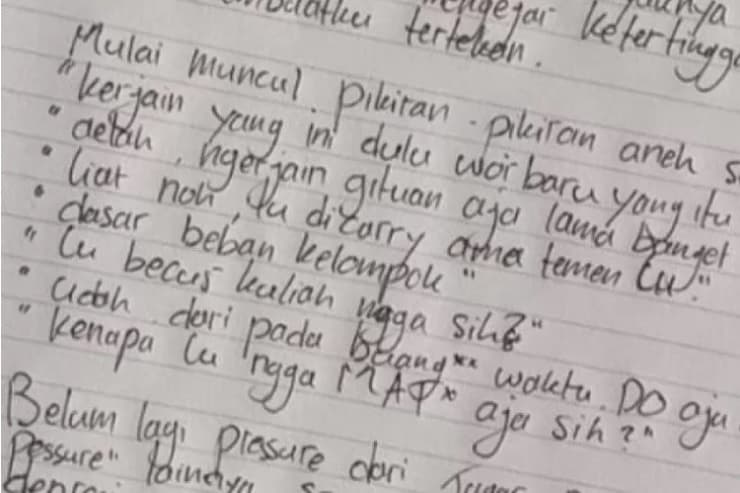 mengejar ketertingga
tertekan.
Mulai muncul. pikiran-pikiran aneh s
"kerjain yang ini dulu woi baru yang itu
"aelah, ngerjain gituan aja lama banget
"liat noh, lu dicarry ama temen lu."
"dasar beban kelompok"
"lu becus kuliah ngga sih?"
"udah dari pada buang** waktu. DO aja
"kenapa lu ngga MAT* aja sih?"
Belum lagi pressure dari
Pessure" lainnya